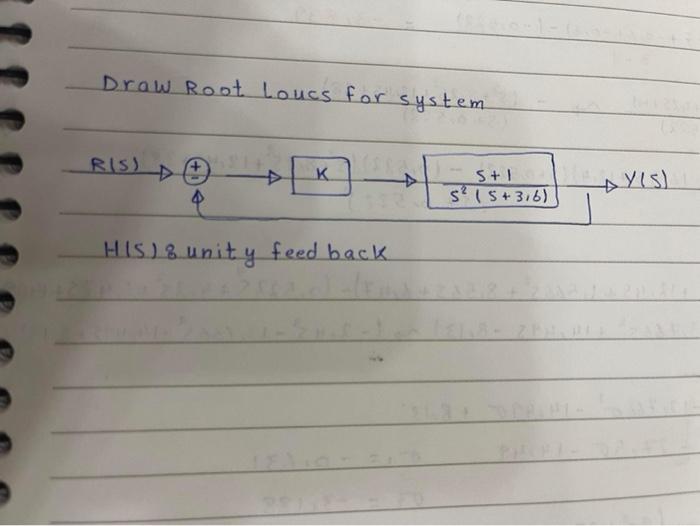 Draw Root Loucs for system
R(S) + - K S+1 / S² (S+3,6) Y(S)
H(S) 8 unity feed back